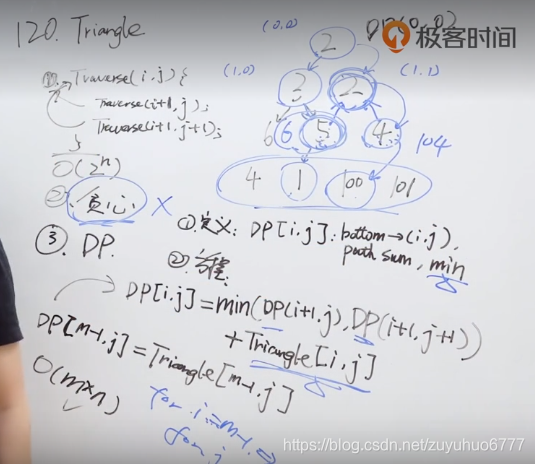 120. Triangle
DP(0,0)
极客时间
(0.0)
2
(1,0)
3
2
(1.1)
6
6
5
4
104
4
1
100
101
①. Traverse(i,j){
Traverse(i+1,j);
Traverse(i+1,j+1);
}
O(2ⁿ)
② 贪心 X
③. DP.
①. 定义: DP[i,j]: bottom→(i,j),
path sum, min
②. 方程:
DP[i,j]=min(DP(i+1,j),DP(i+1,j+1))
+Triangle[i,j]
DP[m-1,j]=Triangle[m-1,j]
O(m×n)
for i=m-1
for j
https://blog.csdn.net/zuyuhuo6777